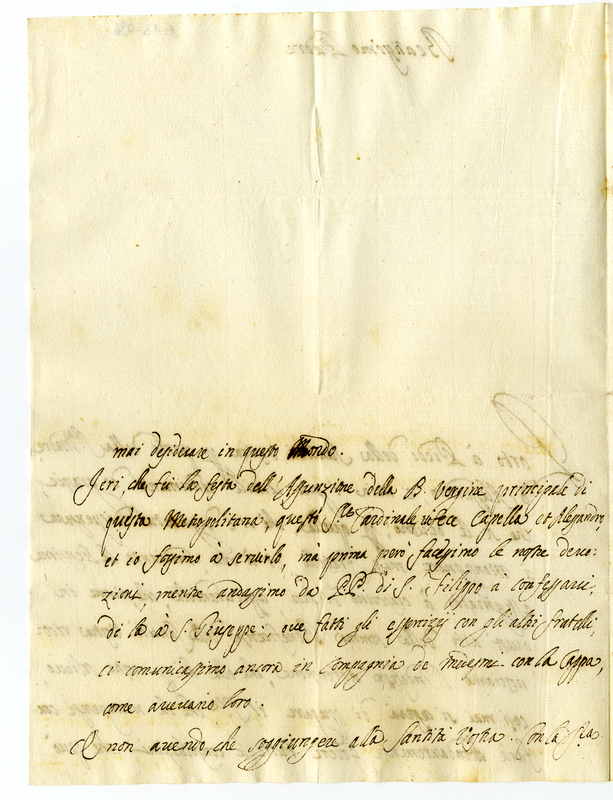 mai desiderare in questo Mondo.
Jeri, che fù la festa dell'Assunzione della B. Vergine principale di
questa Metropolitana, questo S.re Cardinale vi fece Capella et Alesandro,
et io fossimo à servirlo, mà prima però facessimo le nostre devo:
zioni, mentre andassimo da P.P. di S. Filippo à confessarci,
di là à S. Giuseppe, ove fatti gli esercizij con gli altri fratelli,
ci comunicassimo ancora in Compagnia de medesmi con la Cappa,
come avevano loro.
E non avendo, che soggiungere alla Santità Vostra. Con la S.ra